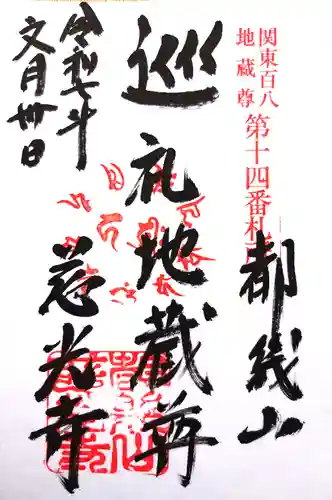 関東百八
地蔵尊
第十四番札所
都幾山
巡礼地蔵尊
慈光寺
令和七年
文月卅日